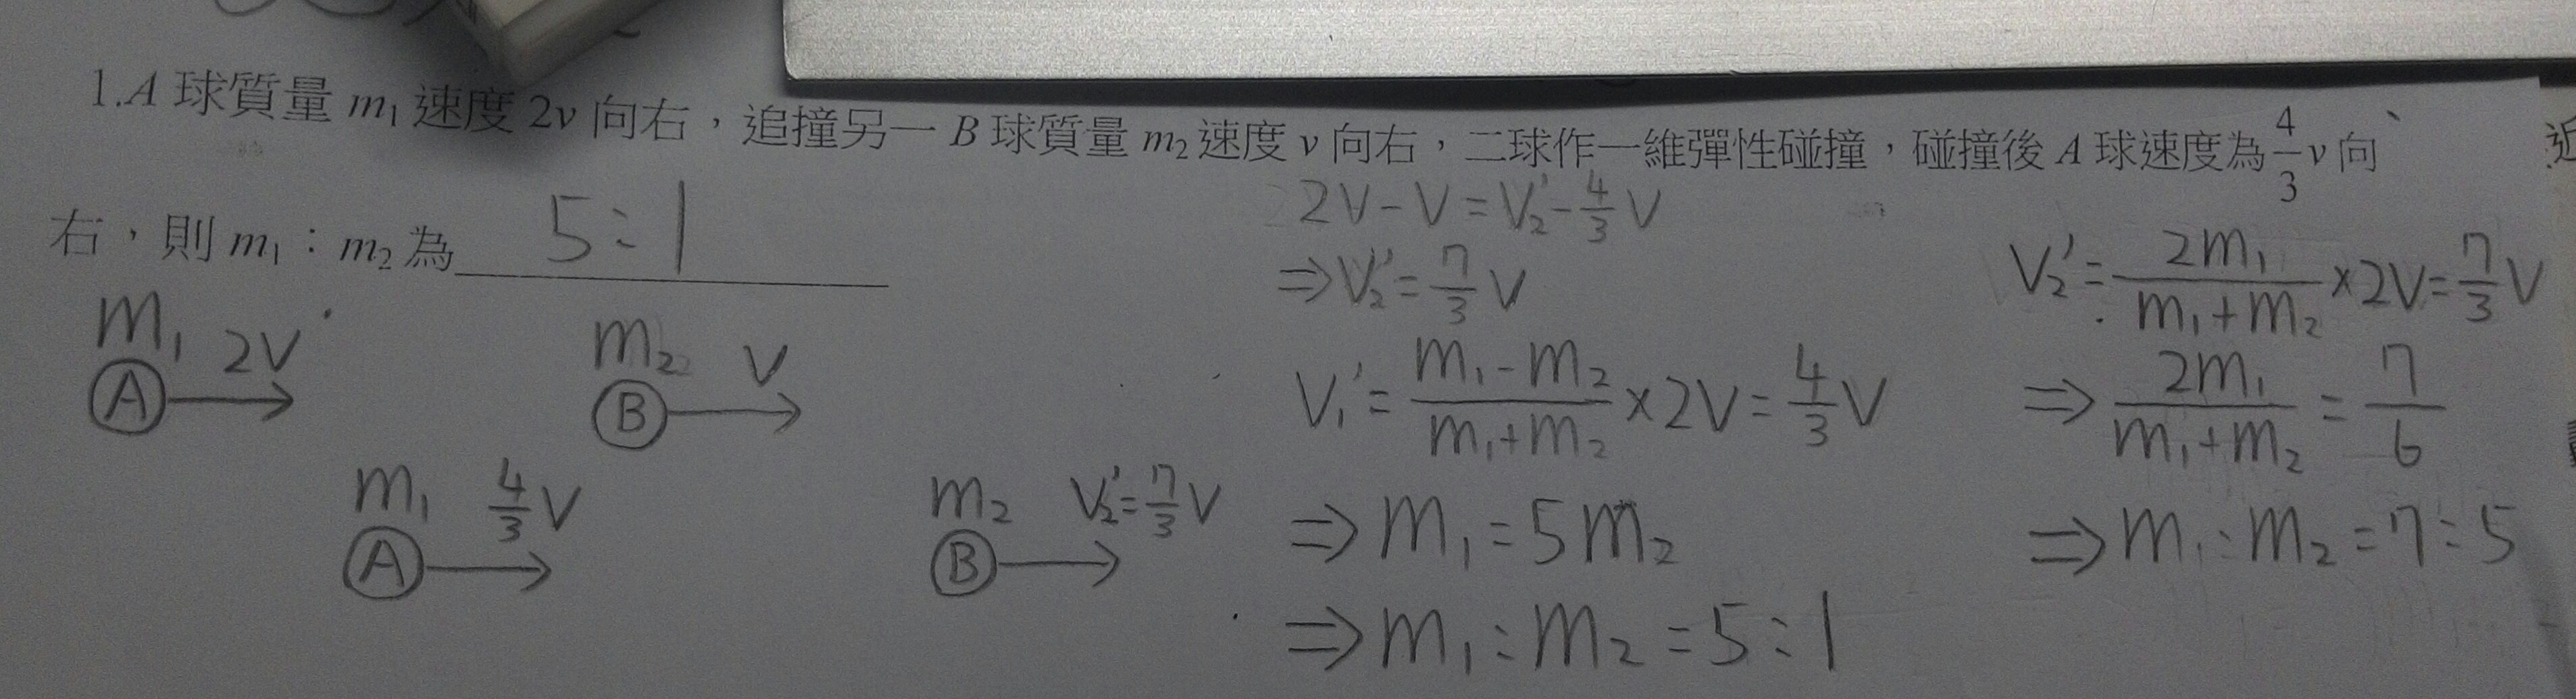 1.A 球質量 m₁ 速度 2v 向右，追撞另一 B 球質量 m₂ 速度 v 向右，二球作一維彈性碰撞，碰撞後 A 球速度為 4/3 v 向
右，則 m₁：m₂ 為 5:1
m₁ 2V
A
m₂ V
B
m₁ 4/3 V
A
m₂ V₂'=7/3 V
B
2V-V=V₂'-4/3 V
⇒V₂'=7/3 V
V₁'=(m₁-m₂)/(m₁+m₂)×2V=4/3 V
⇒m₁=5m₂
⇒m₁:m₂=5:1
V₂'=2m₁/(m₁+m₂)×2V=7/3 V
⇒2m₁/(m₁+m₂)=7/6
⇒m₁:m₂=7:5
近